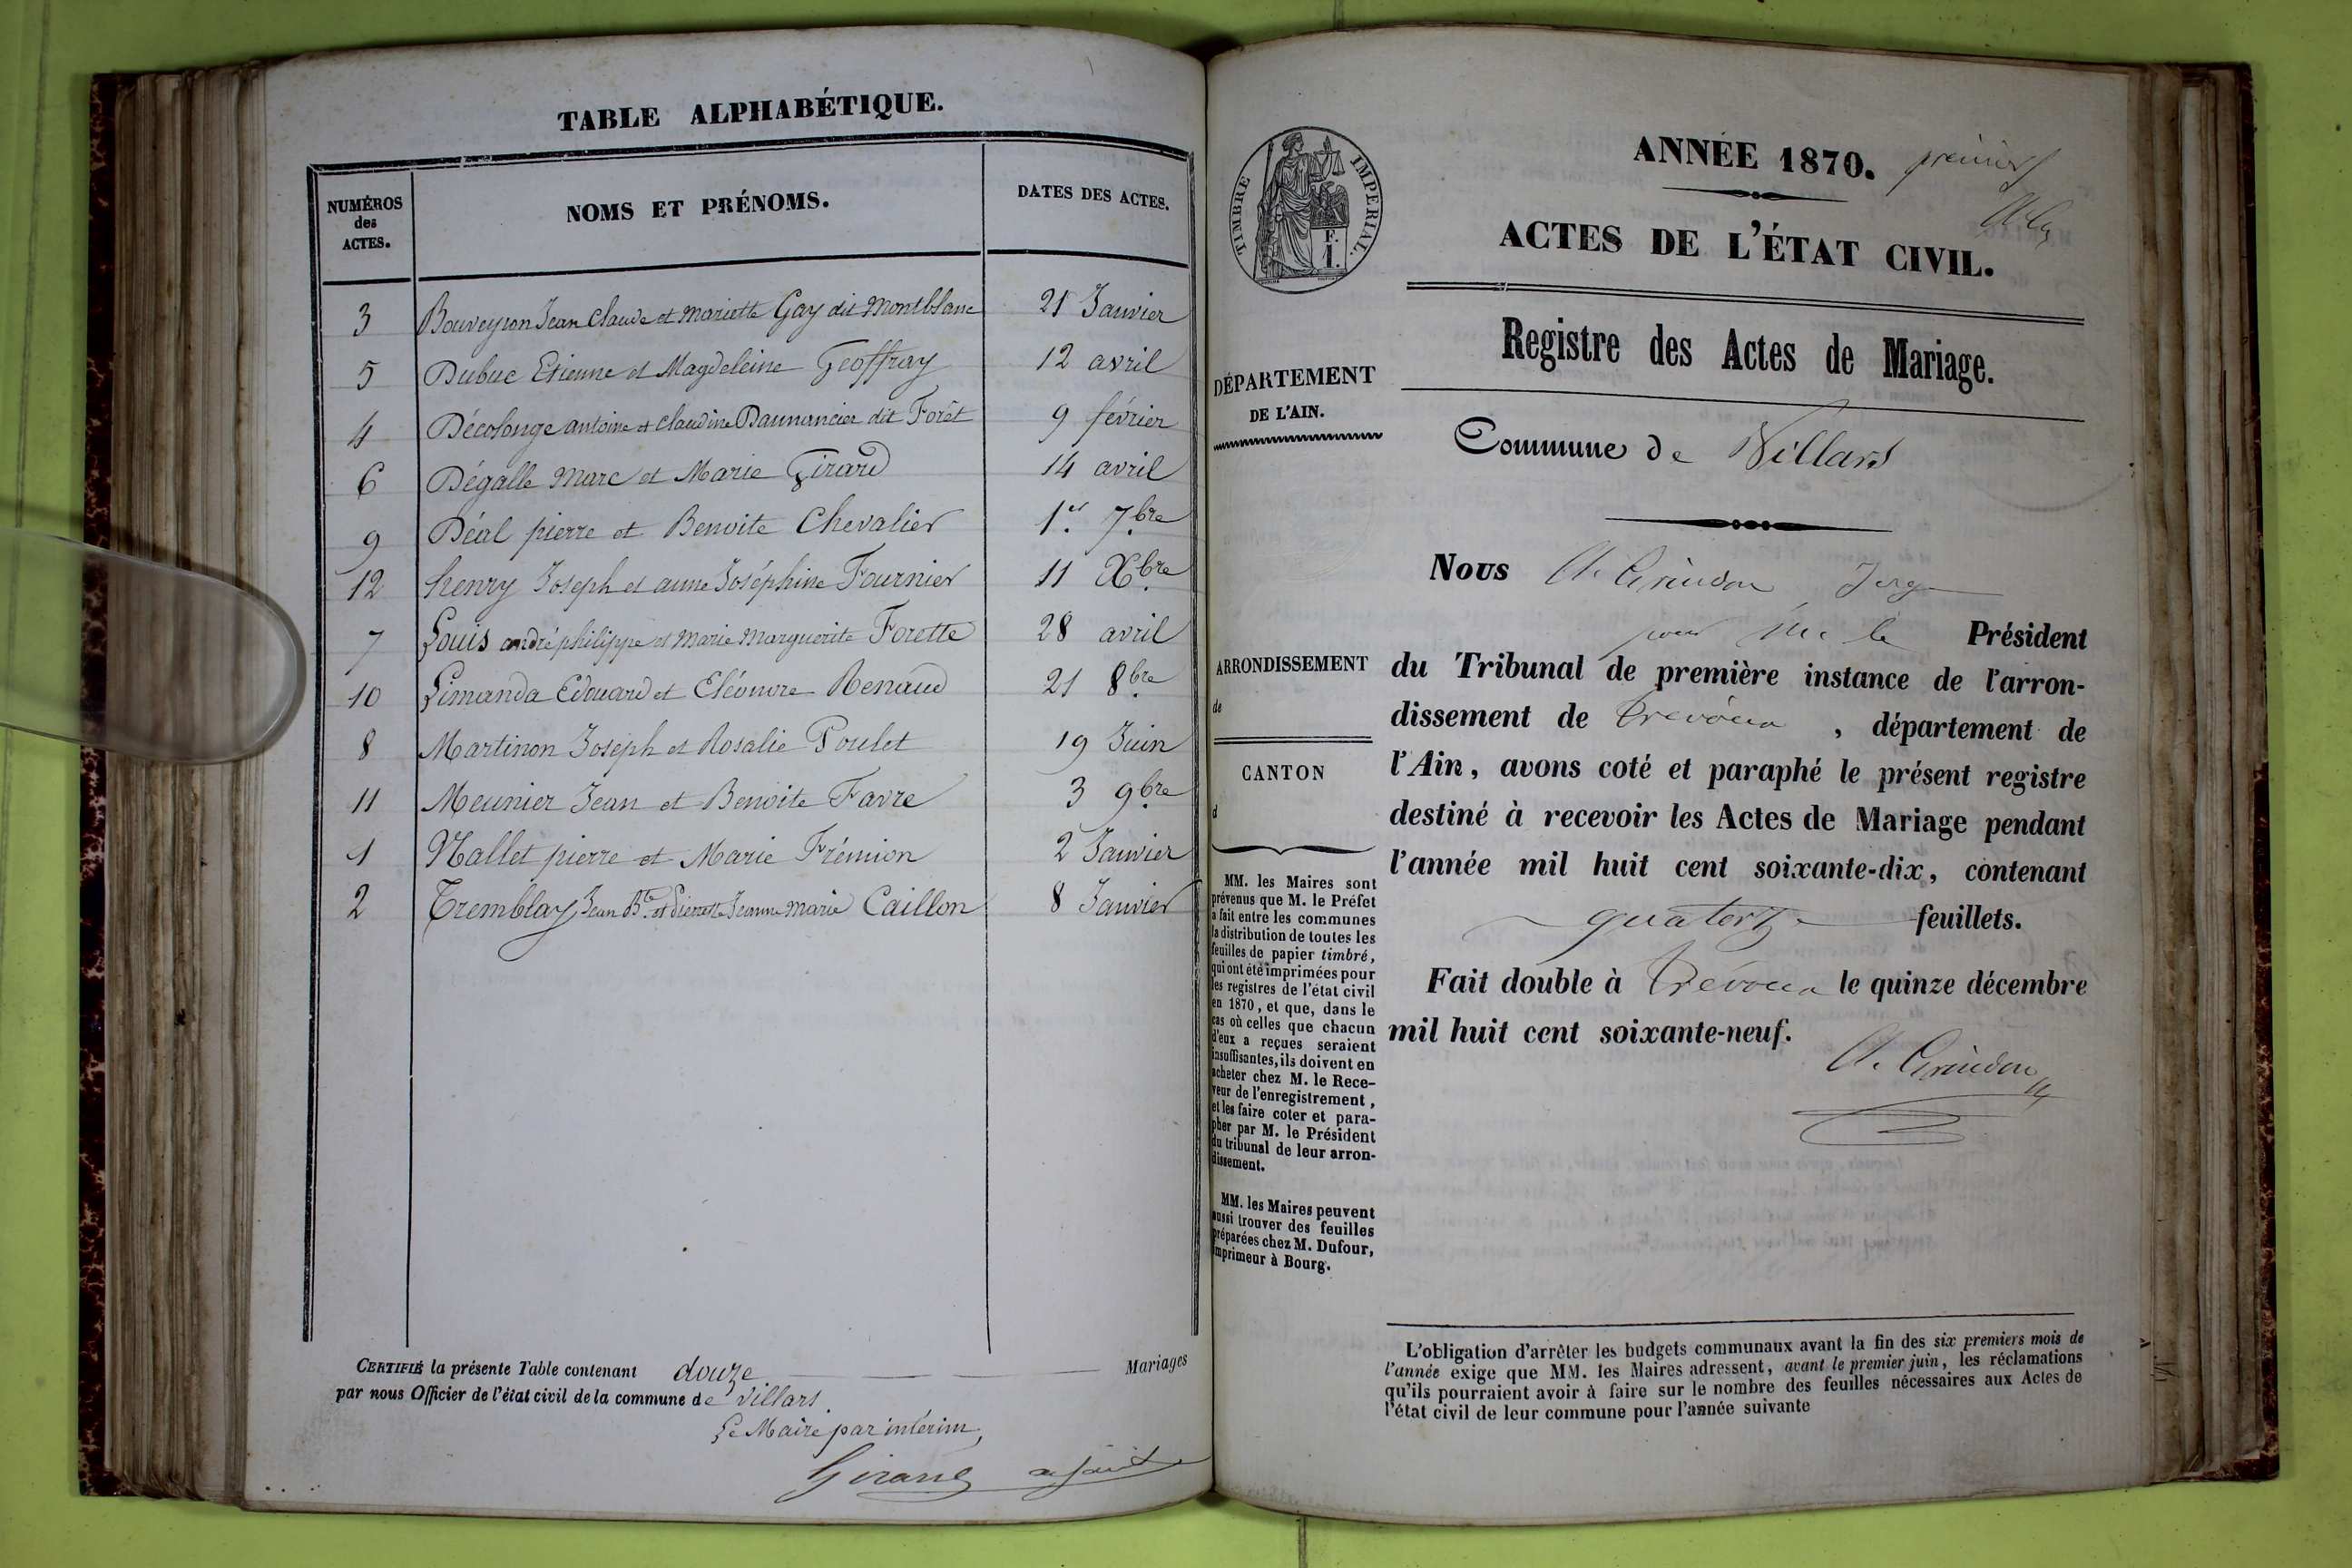 TABLE ALPHABÉTIQUE.
NUMÉROS
des
ACTES.
NOMS ET PRÉNOMS.
DATES DES ACTES.
3 Bouveyron Jean Claude et Mariette Gay dit Montblanc 21 Janvier
5 Dubuc Etienne et Magdeleine Geoffray 12 avril
4 Décolonge antoine et claudine Daunancier dit Forêt 9 février
6 Dégalle Marc et Marie Girard 14 avril
9 Déal pierre et Benoite Chevalier 1er 7bre
12 henry Joseph et anne Joséphine Fournier 11 Xbre
7 Louis andré philippe et Marie Marguerite Forette 28 avril
10 Limanda Edouard et Eléonore Renaud 21 8bre
8 Martinon Joseph et Rosalie Poulet 19 Juin
11 Meunier Jean et Benoite Favre 3 9bre
1 Nallet pierre et Marie Frémion 2 Janvier
2 Tremblay Jean Bte et Pierrette Jeanne Marie Caillon 8 Janvier
CERTIFIÉ la présente Table contenant douze Mariages
par nous Officier de l'état civil de la commune de Villars
Le Maire par intérim,
Girard
TIMBRE IMPERIAL.
ANNÉE 1870. premier
ACTES DE L'ÉTAT CIVIL.
Registre des Actes de Mariage.
DÉPARTEMENT
DE L'AIN.
Commune de Villars
Nous A. Grindon Juge
pour M. le Président
ARRONDISSEMENT
de
du Tribunal de première instance de l'arron-
dissement de Trévoux, département de
l'Ain, avons coté et paraphé le présent registre
destiné à recevoir les Actes de Mariage pendant
l'année mil huit cent soixante-dix, contenant
quatorze feuillets.
Fait double à Trévoux le quinze décembre
mil huit cent soixante-neuf.
A. Grindon
CANTON
d
MM. les Maires sont
prévenus que M. le Préfet
a fait entre les communes
la distribution de toutes les
feuilles de papier timbré,
qui ont été imprimées pour
les registres de l'état civil
en 1870, et que, dans le
cas où celles que chacun
d'eux a reçues seraient
insuffisantes, ils doivent en
acheter chez M. le Rece-
veur de l'enregistrement,
et les faire coter et para-
pher par M. le Président
du tribunal de leur arron-
dissement.
MM. les Maires peuvent
aussi trouver des feuilles
préparées chez M. Dufour,
imprimeur à Bourg.
L'obligation d'arrêter les budgets communaux avant la fin des six premiers mois de
l'année exige que MM. les Maires adressent, avant le premier juin, les réclamations
qu'ils pourraient avoir à faire sur le nombre des feuilles nécessaires aux Actes de
l'état civil de leur commune pour l'année suivante